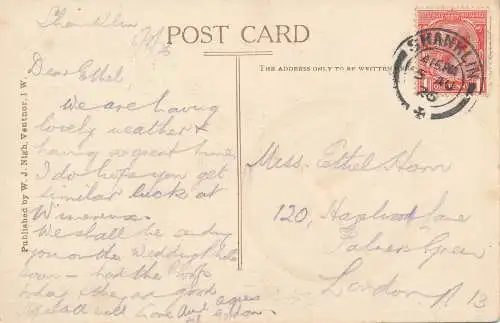 Shanklin
POST CARD
THE ADDRESS ONLY TO BE WRITTEN
SHANKLIN
4 15 PM
5 AU
25
Published by W. J. Nigh, Ventnor, I W.
Dear Ethel
We are having
lovely weather &
having a great time
I do hope you get
similar luck at
We shall be
you on the Wedding
soon - had the
today they are good
will love Aunt Agnes
Miss Ethel Hann
120, Hazelwood Lane
Palmers Green
London N 13